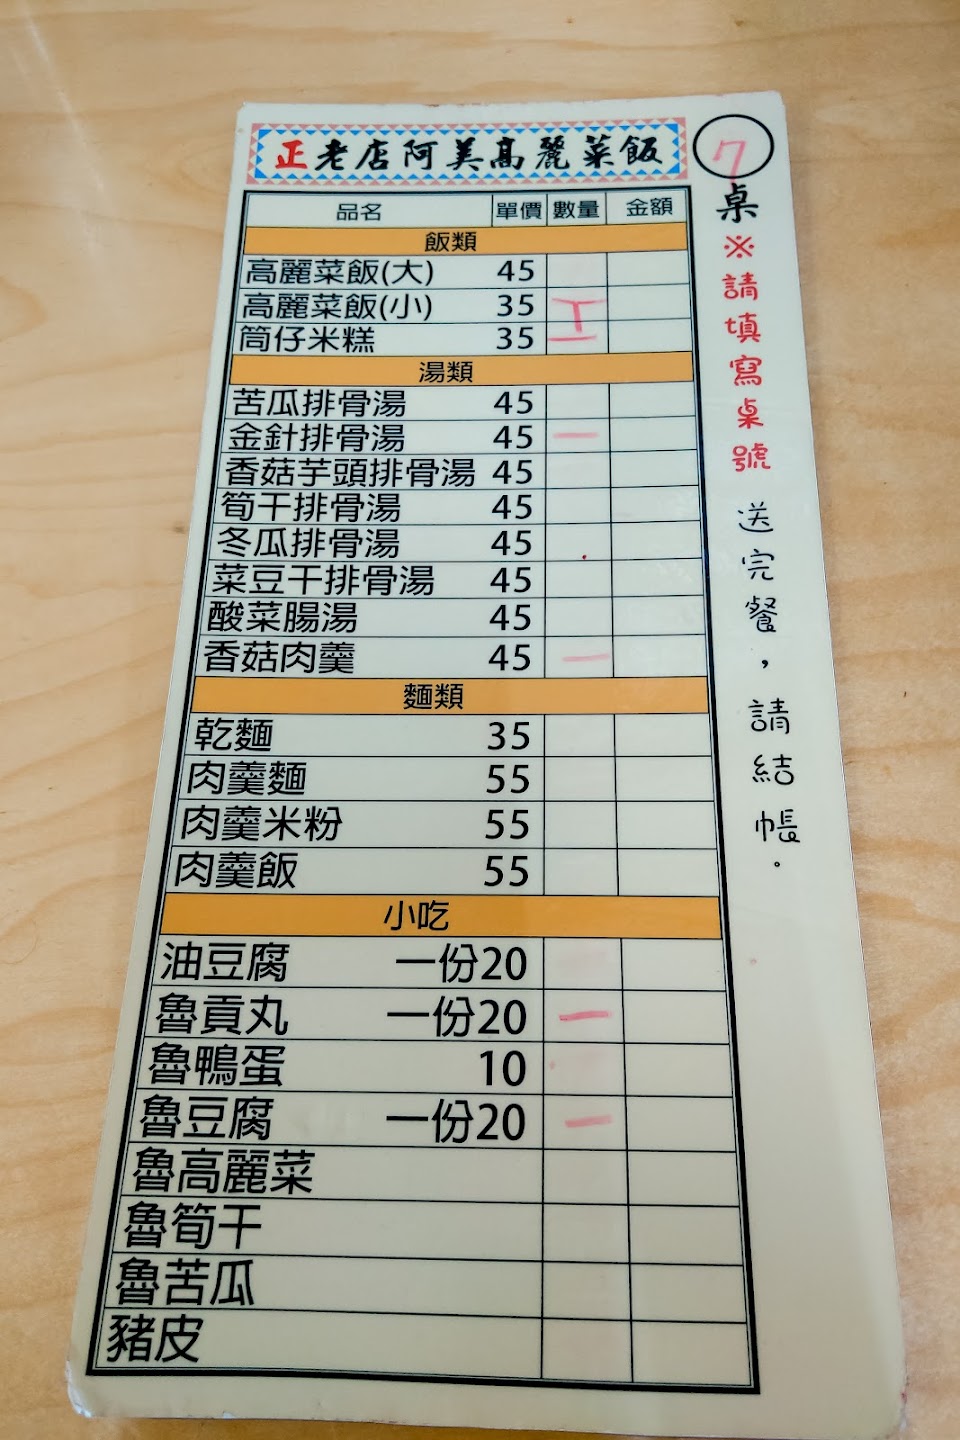 正老店阿美高麗菜飯
7桌
※請填寫桌號 送完餐，請結帳。
品名 單價 數量 金額
飯類
高麗菜飯(大) 45
高麗菜飯(小) 35 丅
筒仔米糕 35 一
湯類
苦瓜排骨湯 45
金針排骨湯 45 一
香菇芋頭排骨湯 45
筍干排骨湯 45
冬瓜排骨湯 45
菜豆干排骨湯 45
酸菜腸湯 45
香菇肉羹 45 一
麵類
乾麵 35
肉羹麵 55
肉羹米粉 55
肉羹飯 55
小吃
油豆腐 一份20
魯貢丸 一份20 一
魯鴨蛋 10
魯豆腐 一份20 一
魯高麗菜
魯筍干
魯苦瓜
豬皮